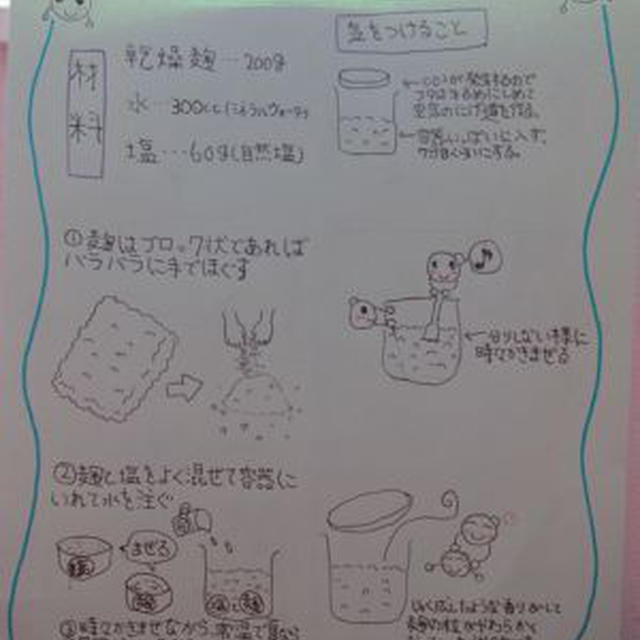 材料
乾燥麹…200g
水…300cc(ミネラルウォーター)
塩…60g(自然塩)
気をつけること
←CO2が発生するので
空気のにげ道を作る。
←容器いっぱいに入れず、
7分目くらいにする。
①麹はブロック状であれば
バラバラに手でほぐす
♪
←分りしない様に
時々かきませる
②麹と塩をよく混ぜて容器に
いれて水を注ぐ
まぜる
塩
麹
水
塩と麹
③時々かきまぜながら、常温で
じゅく成したような香りがして
麹の粒がやわらかく